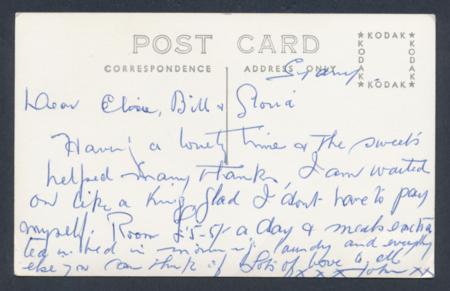 POST CARD
CORRESPONDENCE ADDRESS ONLY
KODAK
KODAK
KODAK
KODAK
Sydney
Dear Elsie, Bill & Gloria
Having a lovely time & the sweets
helped many thanks, I am waited
on like a King, glad I don't have to pay
myself. Room £5-5/- a day & meals extra
tea in bed in morning, laundry and everything
else you can think of Lots of love to all
John xx